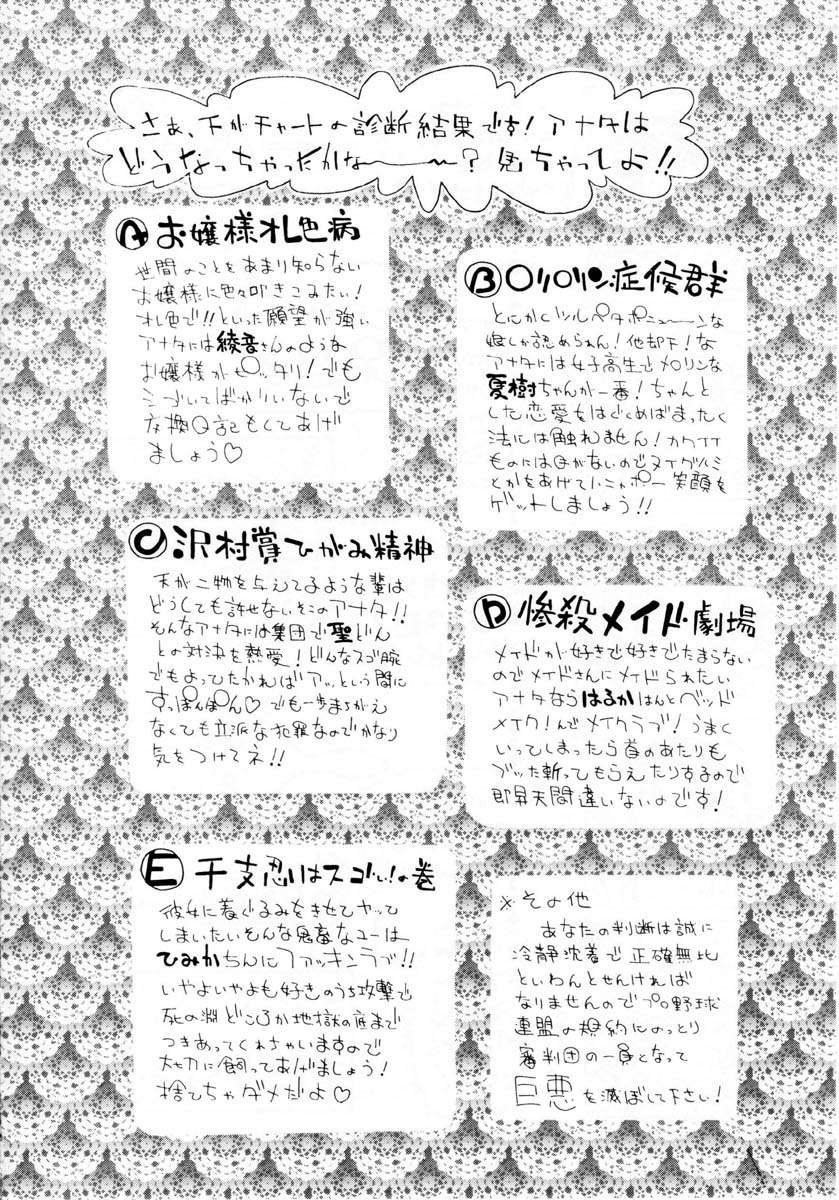 さぁ、下がチャートの診断結果です!アナタは
どうなっちゃったかな~~?見ちゃってしよ!!
Ⓐお嬢様オレ色病
世間のことをあまり知らない
お嬢様に色々叩きこみたい!
オレ色で!!といった願望が強い
アナタには綾音さんのような
お嬢様がピッタリ!でも
ばかりいないで
交換日記もしてあげ
ましょう♡
Ⓑ〇リ〇リン症候群
とにかくツルペタポニューーンな
娘しか認められん!他却下!な
アナタには女子高生でメロリンな
夏樹ちゃんが一番!ちゃんと
した恋愛をはぐくめばまったく
法には触れません!カワイイ
ものには目がないのでヌイグルミ
とかをあげて 笑顔を
ゲットしましょう!!
Ⓒ沢村賞ひがみ精神
天が二物を与えてるような輩は
どうしても許せないそこのアナタ!!
そんなアナタには集団で聖どん
との対決を熱愛!どんなスゴ腕
でもよってたかればアッという間に
すっぽんぽん♡でも一歩まちがえ
なくても立派な犯罪なのでかなり
気をつけてネ!!
Ⓓ惨殺メイド劇場
メイドが好きで好きでたまらない
のでメイドさんにメイドられたい
アナタならはるかはんとベッド
メイク!んでメイクラブ!うまく
いってしまったら首のあたりも
ブッた斬ってもらえたりするので
即昇天間違いないのです!
Ⓔ干支忍りはスゴい!の巻
彼女に着ぐるみをきせてヤッて
しまいたいそんな鬼畜なユーは
ひみかちんにファッキンラブ!!
いやよいやよも好きのうち攻撃で
死の淵どころか地獄の底まで
つきあってくれちゃいますので
大切に飼ってあげましょう!
捨てちゃダメだよ♡
※その他
あなたの判断は誠に
冷静沈着で正確無比
といわんとせんければ
なりませんのでプロ野球
連盟の規約にのっとり
審判団の一員となって
巨悪を滅ぼして下さい!